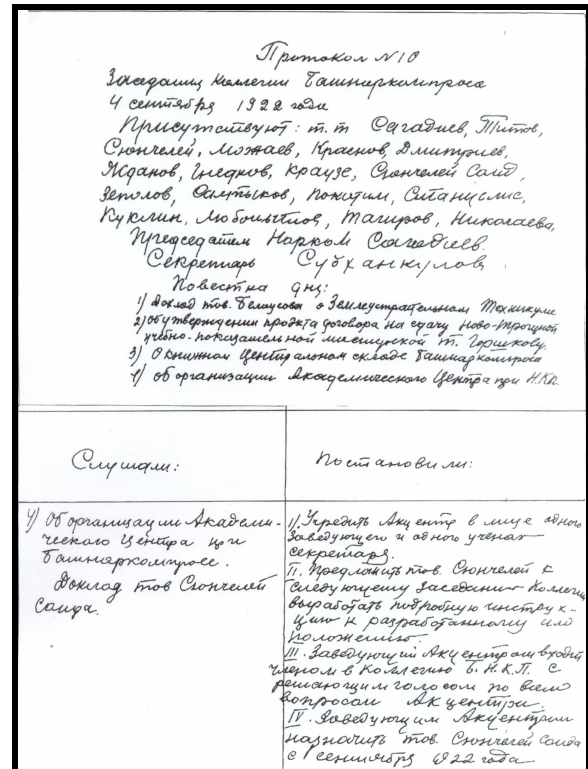 Протокол №10
Заседания Коллегии Башнаркомпроса
4 сентября 1922 года
Присутствуют: т.т. Сагадиев, Титов,
Сюнчелей, Можаев, Краснов, Дмитриев,
Жданов, Гнедков, Краузе, Сюнчелей Саид,
Салтыков, Станислис,
Куклин, Любопытов, Тагиров, Николаева,
Председатель Нарком Сагадиев.
Секретарь Субханкулов
Повестка дня:
1) Доклад тов. Белоусова о Землеустроительном Техникуме
2) Об утверждении проэкта договора на сдачу Ново-Троицкой
учебно-показательной мастерской т. Горшкову.
3) О книжном Центральном складе Башнаркомпроса
4) об организации Академического Центра при Н.К.П.
Слушали:
Постановили:
4) Об организации Академи-
ческого Центра при
Башнаркомпросе.
Доклад тов Сюнчелей
Саида.
I) Учредить Акцентр в лице одного
Заведующего и одного ученаго
секретаря.
II. Предложить тов. Сюнчелей к
следующему заседанию Коллегии
выработать подробную инструк-
цию к разработанному им
положению.
III. Заведующий Акцентром входит
членом в Коллегию Б.Н.К.П. с
решающим голосом по всем
вопросам Акцентра.
IV. Заведующим Акцентром
назначить тов. Сюнчелей Саида
с 1 сентября 1922 года